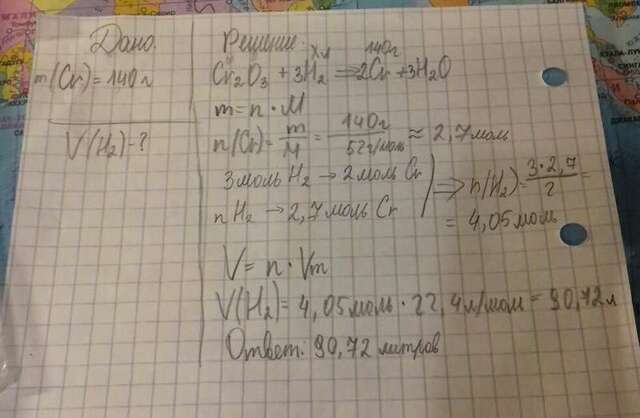 Дано:
m(Cr) = 140г
V(H₂) - ?
Решение:
x л 140г
Cr₂O₃ + 3H₂ = 2Cr + 3H₂O
m = n · M
n(Cr) = m/M = 140г/52г/моль ≈ 2,7 моль
3 моль H₂ → 2 моль Cr
n H₂ → 2,7 моль Cr
⇒ n(H₂) = 3·2,7/2 =
= 4,05 моль
V = n · Vm
V(H₂) = 4,05 моль · 22,4 л/моль = 90,72 л
Ответ: 90,72 литров